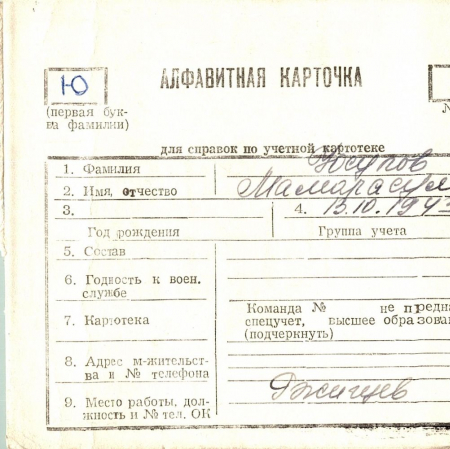 Ю
АЛФАВИТНАЯ КАРТОЧКА
(первая бук-
ва фамилии)
для справок по учетной картотеке
1. Фамилия Юсупов
2. Имя, отчество Мамарасул
3. 4. 13.10.1943
Год рождения Группа учета
5. Состав
6. Годность к воен.
службе
Команда № не предна
7. Картотека спецучет, высшее образова
(подчеркнуть)
8. Адрес м-жительст-
ва и № телефона
9. Место работы, дол-
жность и № тел. ОК